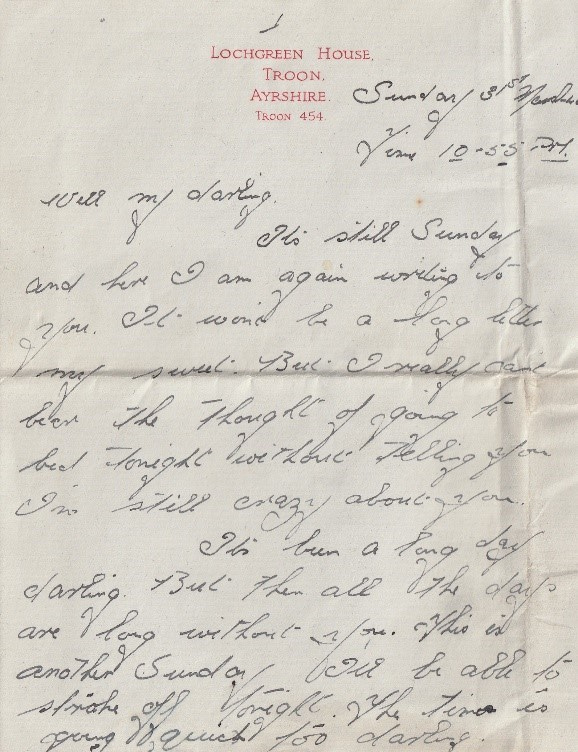 1
LOCHGREEN HOUSE,
TROON,
AYRSHIRE.
TROON 454.
Sunday 31st
Time 10-55 P.M.
Well my darling.
It's still Sunday
and here I am again writing to
you. It won't be a long letter
my sweet. But I really can't
bear the thought of going to
bed tonight without telling you
I'm still crazy about you.
It's been a long day
darling. But then all the days
are long without you. This is
another Sunday I'll be able to
stroke off tonight. The time is
going quick too darling.